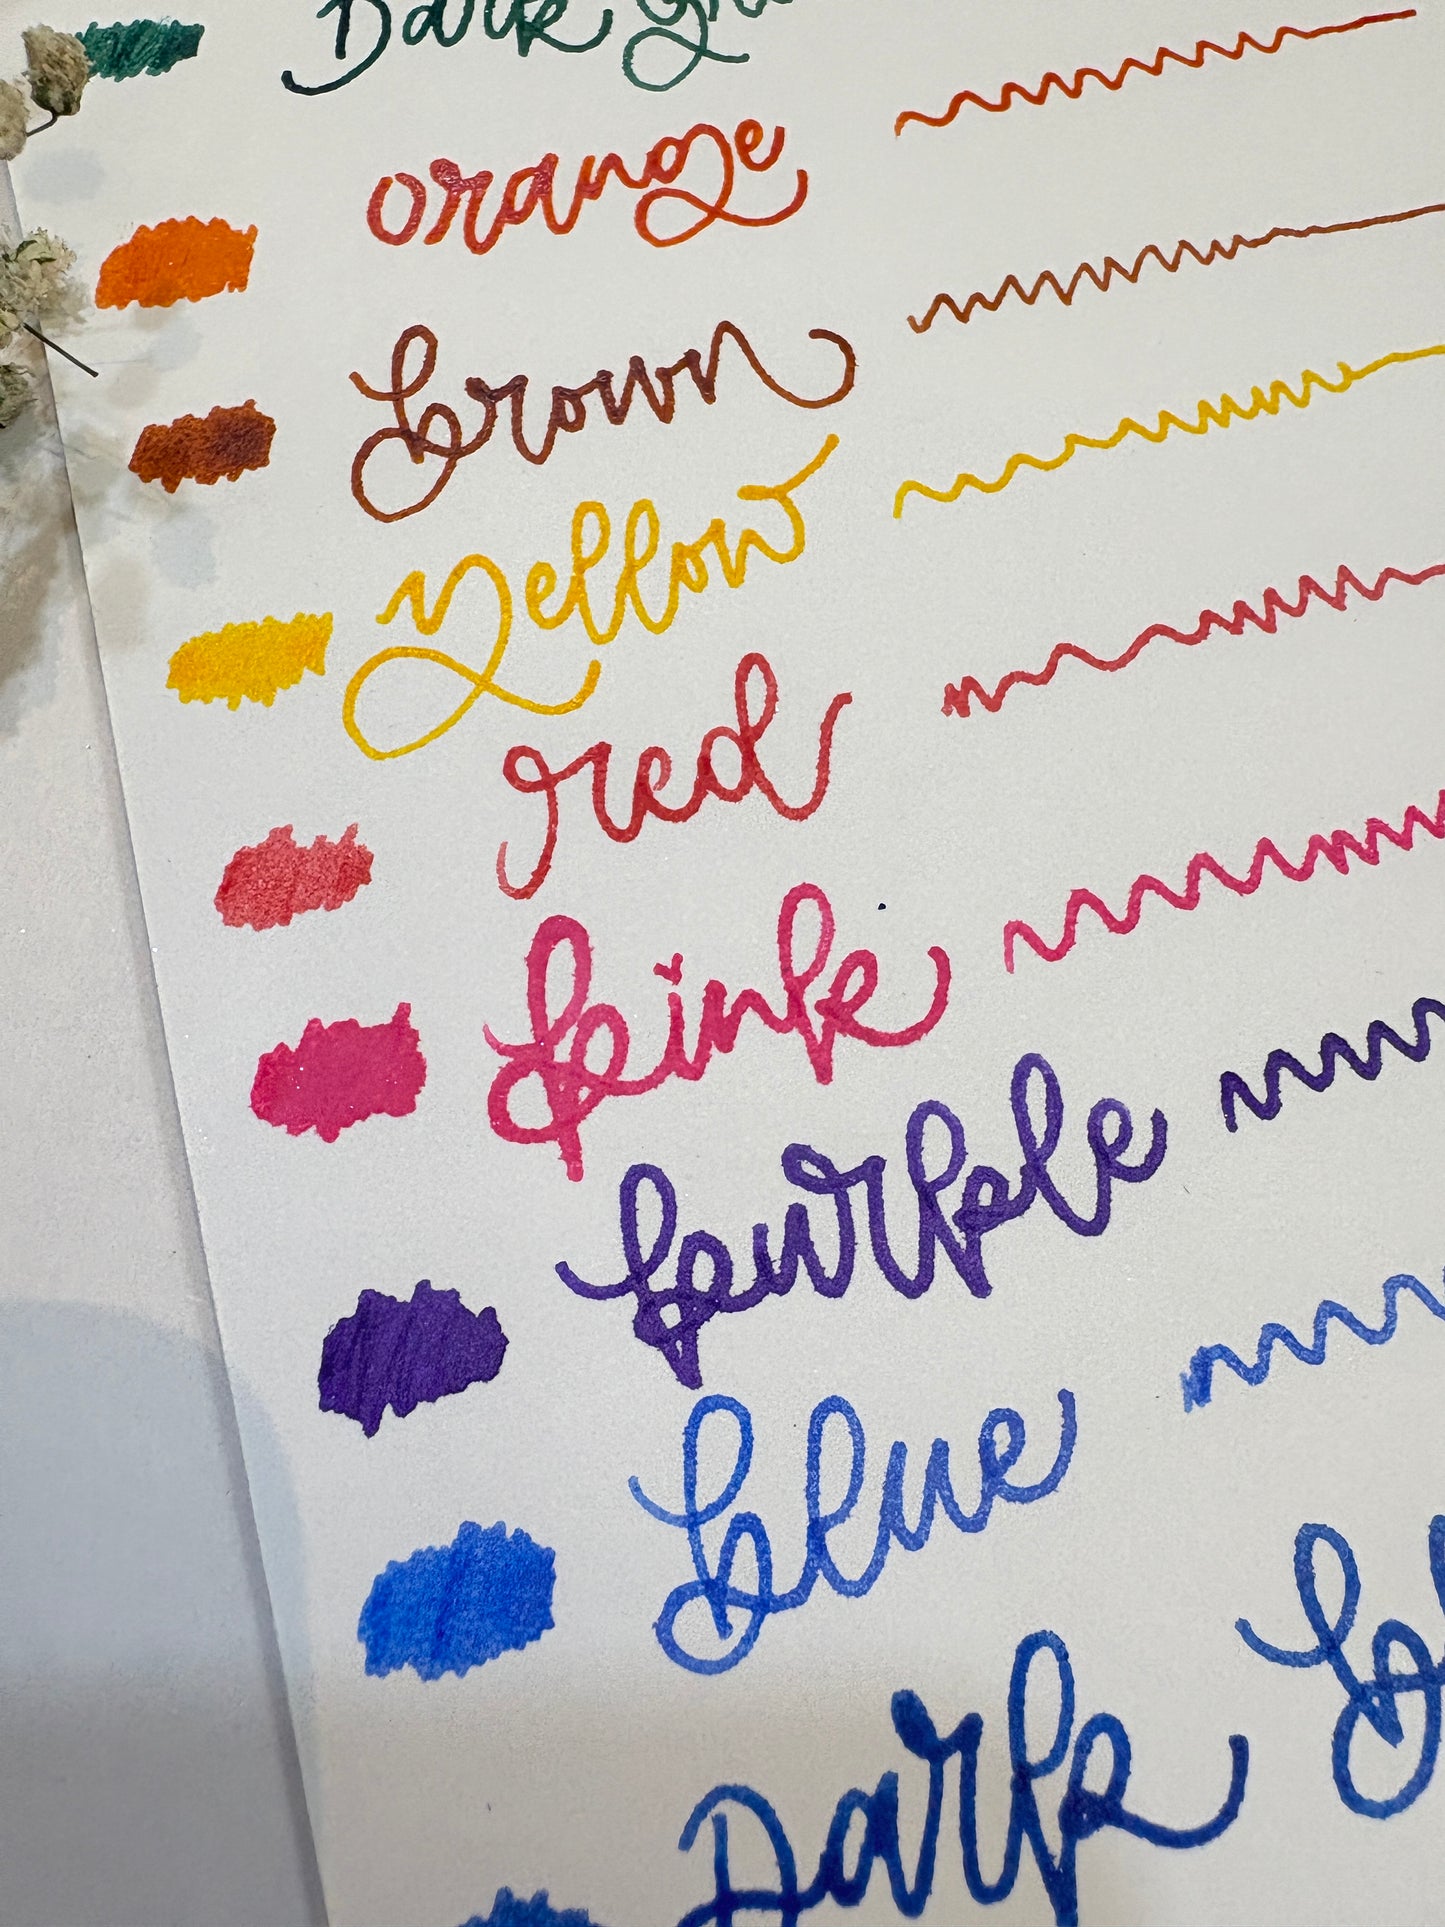 Dark
orange
brown
yellow
red
pink
purple
blue
Dark